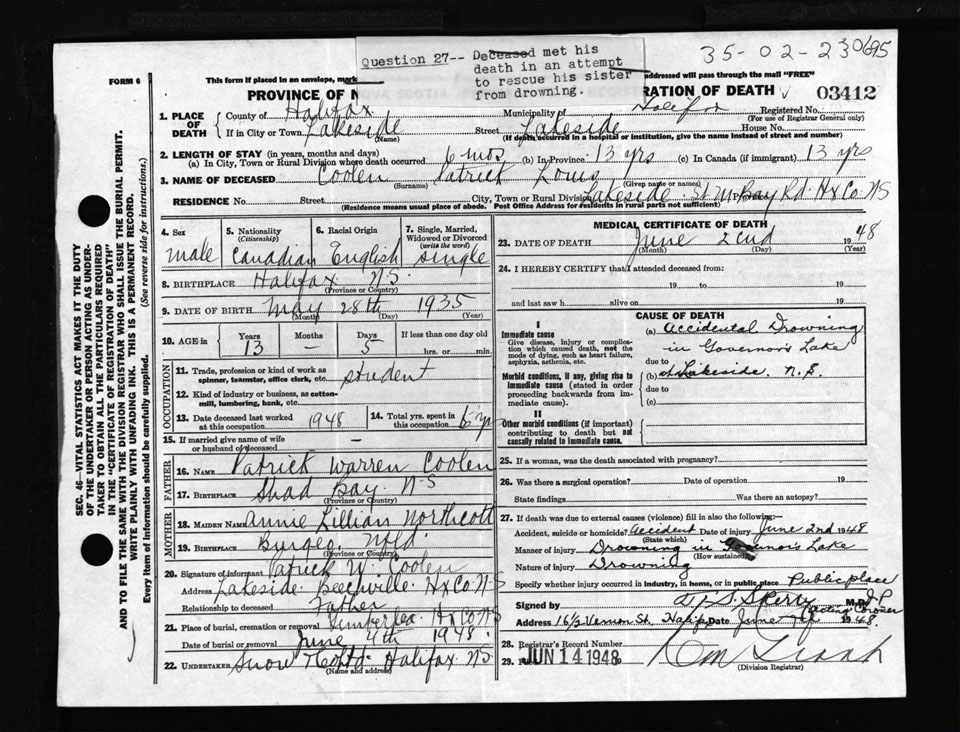 35-02-230695
Question 27-- Deceased met his
death in an attempt
to rescue his sister
from drowning.
FORM 6
This form if placed in an envelope, mark
addressed will pass through the mail "FREE"
PROVINCE OF N
RATION OF DEATH
03412
1. PLACE OF DEATH
County of Halifax
Municipality of Halifax
Registered No.
(For use of Registrar General only)
If in City or Town Lakeside
(Name)
Street Lakeside
House No.
(If death occurred in a hospital or institution, give the name instead of street and number)
2. LENGTH OF STAY (in years, months and days)
(a) In City, Town or Rural Division where death occurred 6 mos (b) In Province 13 yrs (c) In Canada (if immigrant) 13 yrs
3. NAME OF DECEASED Coolen Patrick Louis
(Surname) (Given name or names)
RESIDENCE No. Street City, Town or Rural Division Lakeside St M Bay Rd Hx Co NS
(Residence means usual place of abode. Post Office Address for residents in rural parts not sufficient)
SEC. 46—VITAL STATISTICS ACT MAKES IT THE DUTY
OF THE UNDERTAKER OR PERSON ACTING AS UNDER-
TAKER TO OBTAIN ALL THE PARTICULARS REQUIRED
IN THE "CERTIFICATE OF REGISTRATION OF DEATH"
AND TO FILE THE SAME WITH THE DIVISION REGISTRAR WHO SHALL ISSUE THE BURIAL PERMIT.
WRITE PLAINLY WITH UNFADING INK. THIS IS A PERMANENT RECORD.
Every item of information should be carefully supplied. (See reverse side for instructions.)
4. Sex
male
5. Nationality
(Citizenship)
Canadian
6. Racial Origin
English
7. Single, Married,
Widowed or Divorced
(write the word)
single
8. BIRTHPLACE Halifax NS
(Province or Country)
9. DATE OF BIRTH May 28th 1935
(Month) (Day) (Year)
10. AGE in
Years Months Days If less than one day old
13 - 5 hrs. or min.
OCCUPATION
11. Trade, profession or kind of work as
spinner, teamster, office clerk, etc. student
12. Kind of industry or business, as cotton-
mill, lumbering, bank, etc.
13. Date deceased last worked
at this occupation 1948
14. Total yrs. spent in
this occupation 6 yr
15. If married give name of wife
or husband of deceased —
FATHER
16. NAME Patrick Warren Coolen
17. BIRTHPLACE Shad Bay NS
(Province or Country)
MOTHER
18. MAIDEN NAME Annie Lillian Northcott
19. BIRTHPLACE Burgeo Nfld
(Province or Country)
20. Signature of informant Patrick W. Coolen
Address Lakeside Beechville Hx Co NS
Relationship to deceased Father
21. Place of burial, cremation or removal Timberlea Hx Co NS
Date of burial or removal June 4th 1948
22. UNDERTAKER Snow & Co Ltd Halifax NS
(Name and address)
MEDICAL CERTIFICATE OF DEATH
23. DATE OF DEATH June 22nd 1948
(Month) (Day)
24. I HEREBY CERTIFY that I attended deceased from:
19 to 19
and last saw h alive on 19
CAUSE OF DEATH
I
Immediate cause
Give disease, injury or complica-
tion which caused death, not the
mode of dying, such as heart failure,
asphyxia, asthenia, etc.
(a) Accidental Drowning
in Governor's Lake
due to
Morbid conditions, if any, giving rise to
immediate cause (stated in order
proceeding backwards from im-
mediate cause).
(b) at Lakeside, N.S.
due to
(c)
II
Other morbid conditions (if important)
contributing to death but not
causally related to immediate cause.
25. If a woman, was the death associated with pregnancy?
26. Was there a surgical operation? Date of operation 19
State findings Was there an autopsy?
27. If death was due to external causes (violence) fill in also the following:—
Accident, suicide or homicide? Accident Date of injury June 2nd 1948
(State which)
Manner of injury Drowning in Governor's Lake
(How sustained)
Nature of injury Drowning
Specify whether injury occurred in industry, in home, or in public place Public place
Signed by M.D. J P
(Acting Coroner
Address 16 1/2 Vernon St, Halifax Date June 1948.
28. Registrar's Record Number
29. JUN 14 1948
(Division Registrar)